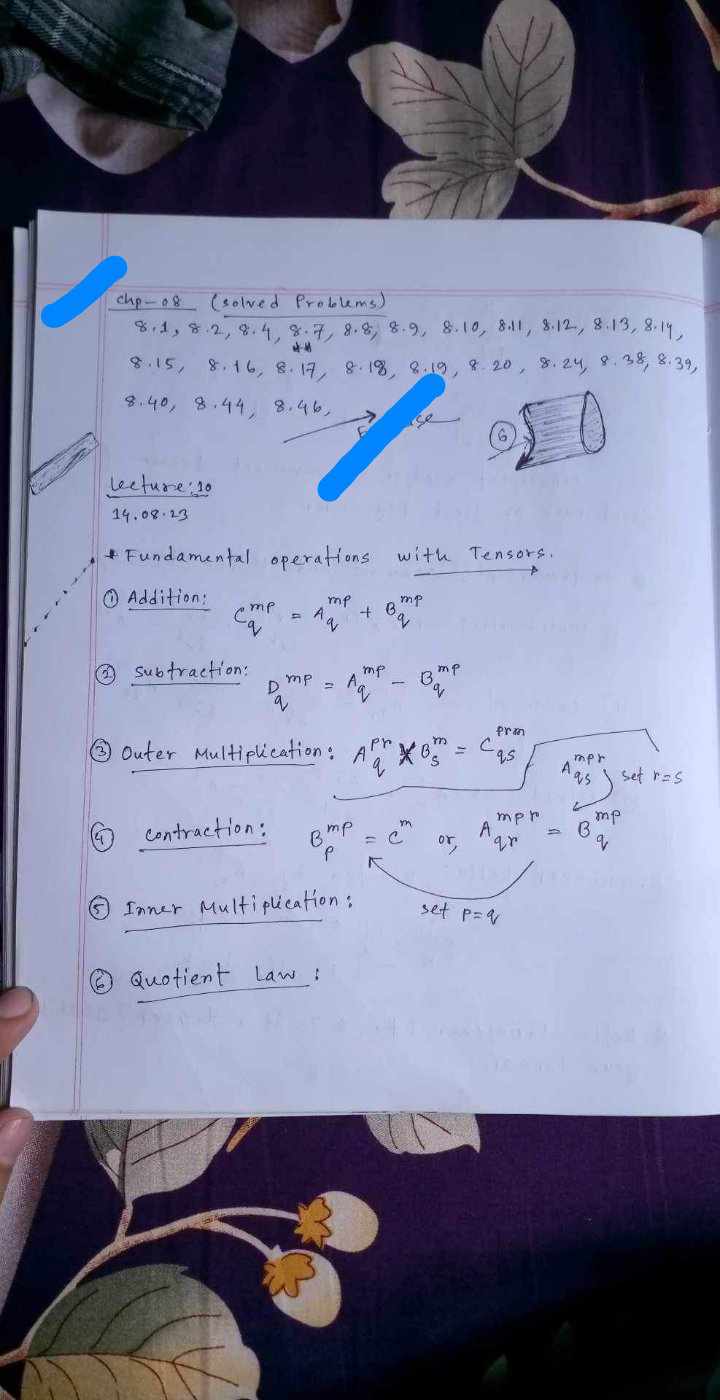 Chp-08 (solved Problems)
8.1, 8.2, 8.4, 8.7, 8.8, 8.9, 8.10, 8.11, 8.12, 8.13, 8.14,
**
8.15, 8.16, 8.17, 8.18, 8.19, 8.20, 8.24, 8.38, 8.39,
8.40, 8.44, 8.46,
6
Lecture: 10
14.08.23
* Fundamental operations with Tensors.
① Addition: C^{mp}_q = A^{mp}_q + B^{mp}_q
② Subtraction: D^{mp}_q = A^{mp}_q - B^{mp}_q
③ Outer Multiplication: A^{pr}_q × B^m_s = C^{prm}_{qs}
A^{mpr}_{qs} set r=s
④ Contraction: B^{mp}_p = C^m or, A^{mpr}_{qr} = B^{mp}_q
set p=q
⑤ Inner Multiplication:
⑥ Quotient Law: